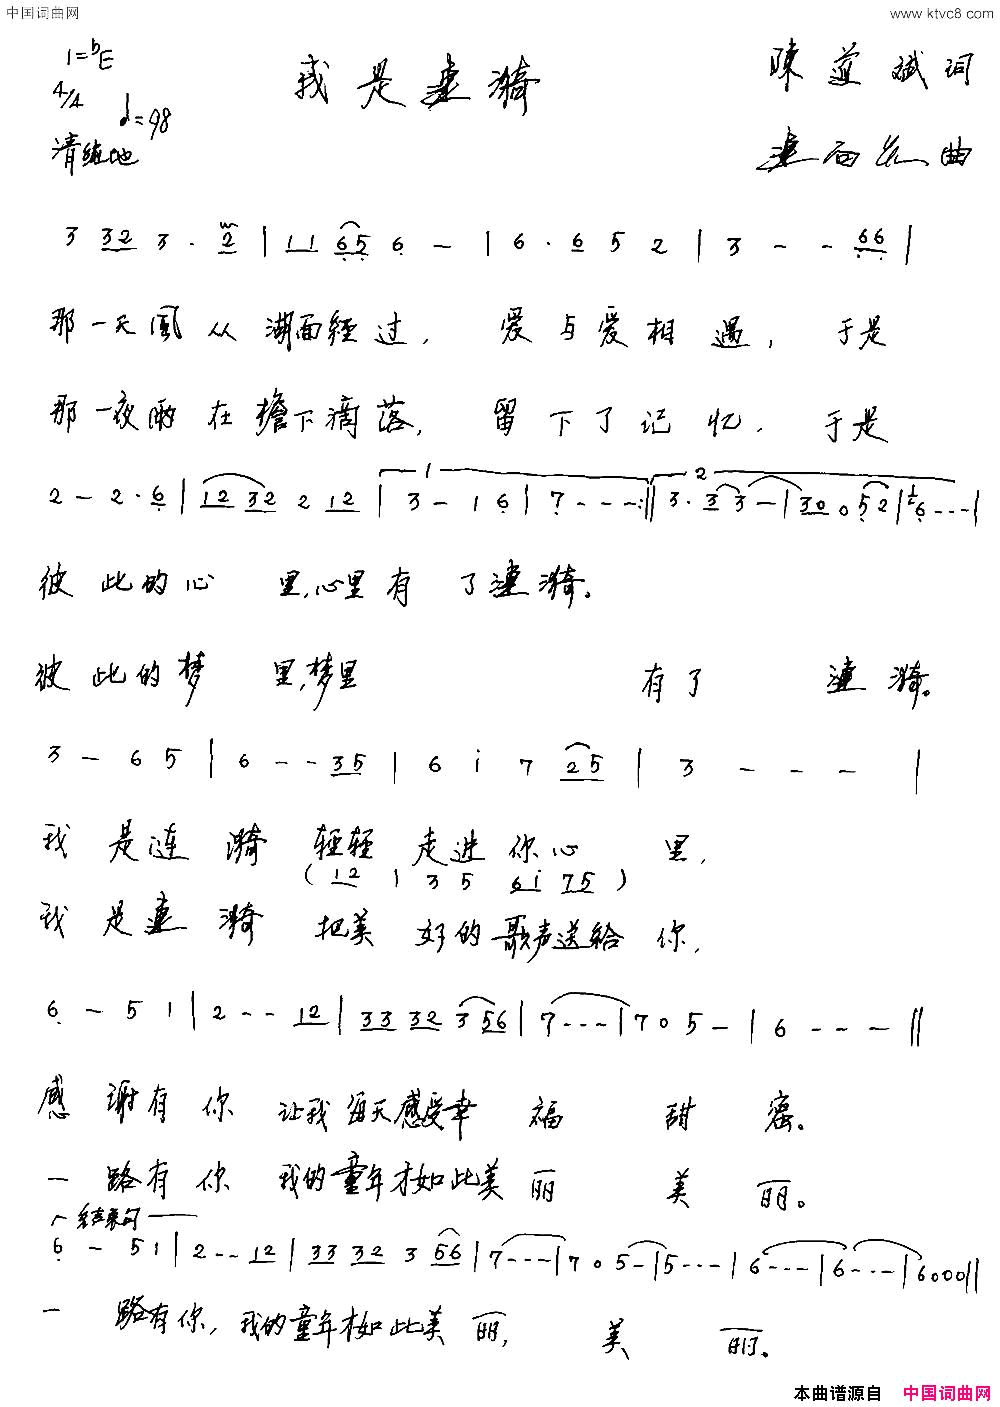 中国词曲网 www.ktvc8.com
1=bE
4/4
♩=98
我是連漪
陳道斌词
曲
3 32 3· 2 | 11 65 6 – | 6· 6 5 2 | 3 – – 66 |
那一天風从湖面経过，爱与爱相遇，于是
那一夜雨在檐下滴落，留下了记忆，于是
2 – 2·6 | 12 32 2 12 | 3 – 1 6 | 7 – – – :|| 3· 3 3 – | 30 0 52 | 6 – – – |
彼此的心里，心里有了連漪。
彼此的梦里，梦里有了連漪。
3 – 6 5 | 6 – – 35 | 6 i 7 25 | 3 – – – |
我是涟漪轻轻走进你心里，
( 12 1 3 5 6i 75 )
我是連漪把美好的歌声送給你，
6 – 5 1 | 2 – – 12 | 33 32 3 56 | 7 – – – | 7 0 5 – | 6 – – – ||
感谢有你让我每天感受幸福甜密。
一路有你我的童年才如此美丽美丽。
结束句
6 – 5 1 | 2 – – 12 | 33 32 3 56 | 7 – – – | 7 0 5 – | 5 – – – | 6 – – – | 6 – – – | 6000 ||
一路有你，我的童年才如此美丽，美丽。
本曲谱源自 中国词曲网